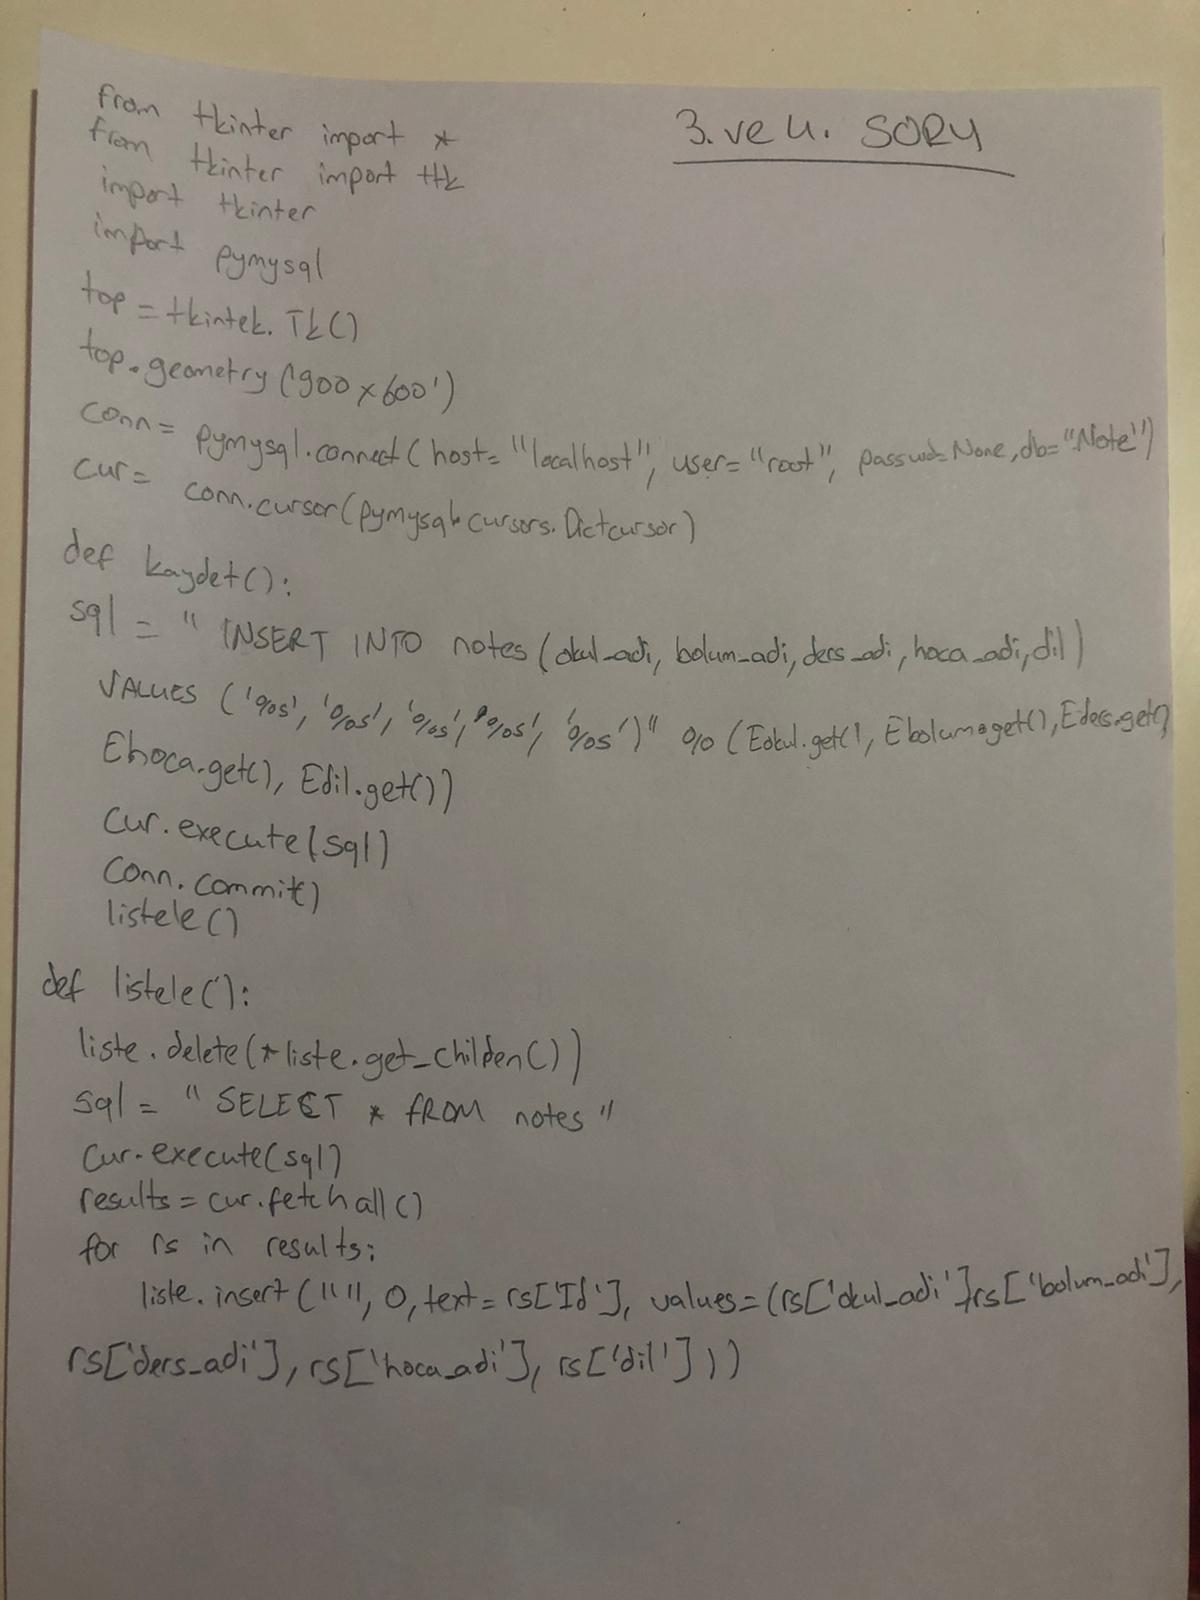 3. ve 4. SORU
from tkinter import *
from tkinter import ttk
import tkinter
import pymysql
top = tkintek. Tk()
top.geometry('900x600')
conn = pymysql.connect(host="localhost", user="root", passwd=None, db="Note")
cur = conn.cursor(pymysql.cursors.Dictcursor)
def kaydet():
sql = " INSERT INTO notes (okul_adi, bolum_adi, ders_adi, hoca_adi, dil)
VALUES ('%s', '%s', '%s', '%s', '%s')" % (Eokul.get(), Ebolum.get(), Eders.get(),
Ehoca.get(), Edil.get())
cur.execute(sql)
conn.commit()
listele()
def listele():
liste.delete(*liste.get_childen())
sql = " SELECT * FROM notes "
cur.execute(sql)
results = cur.fetchall()
for rs in results:
liste.insert("", 0, text=rs['Id'], values=(rs['okul_adi'],rs['bolum_adi'],
rs['ders_adi'], rs['hoca_adi'], rs['dil']))